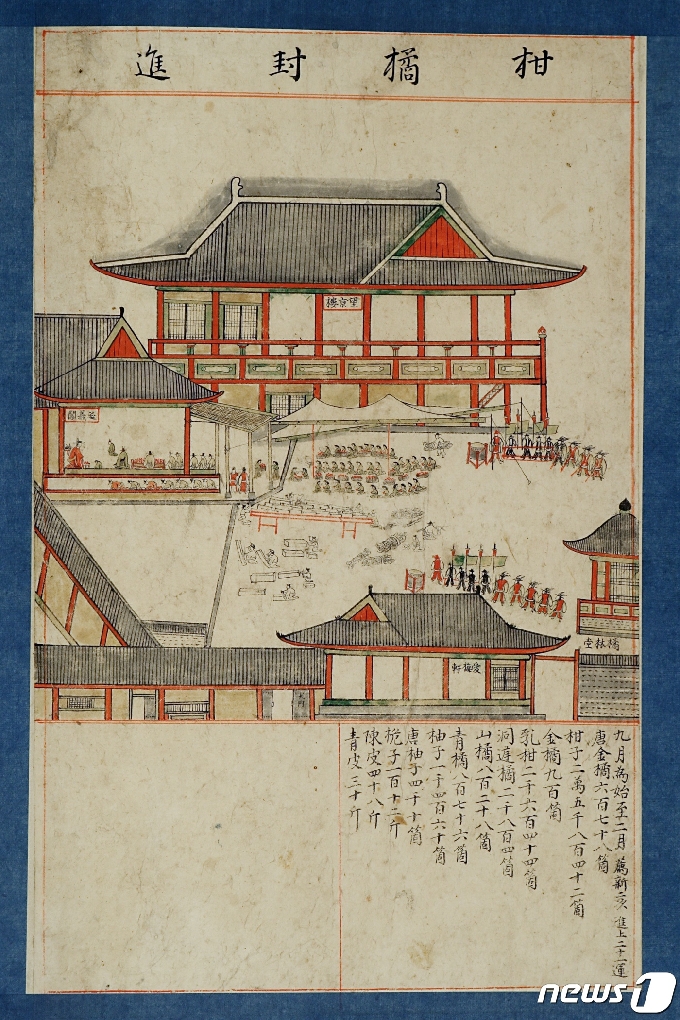 柑橘封進
望京樓
橘林堂
愛梅軒
九月為始至二月 薦新二次 進上二十一運
唐金橘六百七十八箇
柑子二萬五千八百四十二箇
金橘九百箇
乳柑二千六百四十四箇
洞庭橘二千八百四箇
山橘八百二十八箇
青橘八百七十六箇
柚子一千四百六十箇
唐柚子四千十箇
梔子一百十二斤
陳皮四十八斤
青皮三十斤
news1